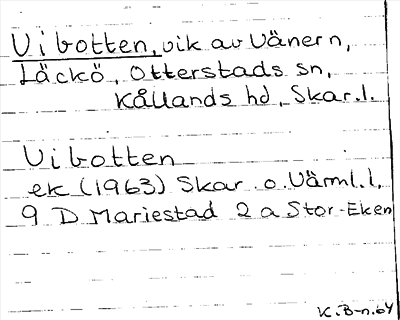 Vibotten, vik av Vänern,
Läckö, Otterstads sn,
Kållands hd, Skar.l.
Vibotten
ek (1963) Skar. o. Värml.l.
9 D Mariestad 2 a Stor-Eken
K.B-n.64